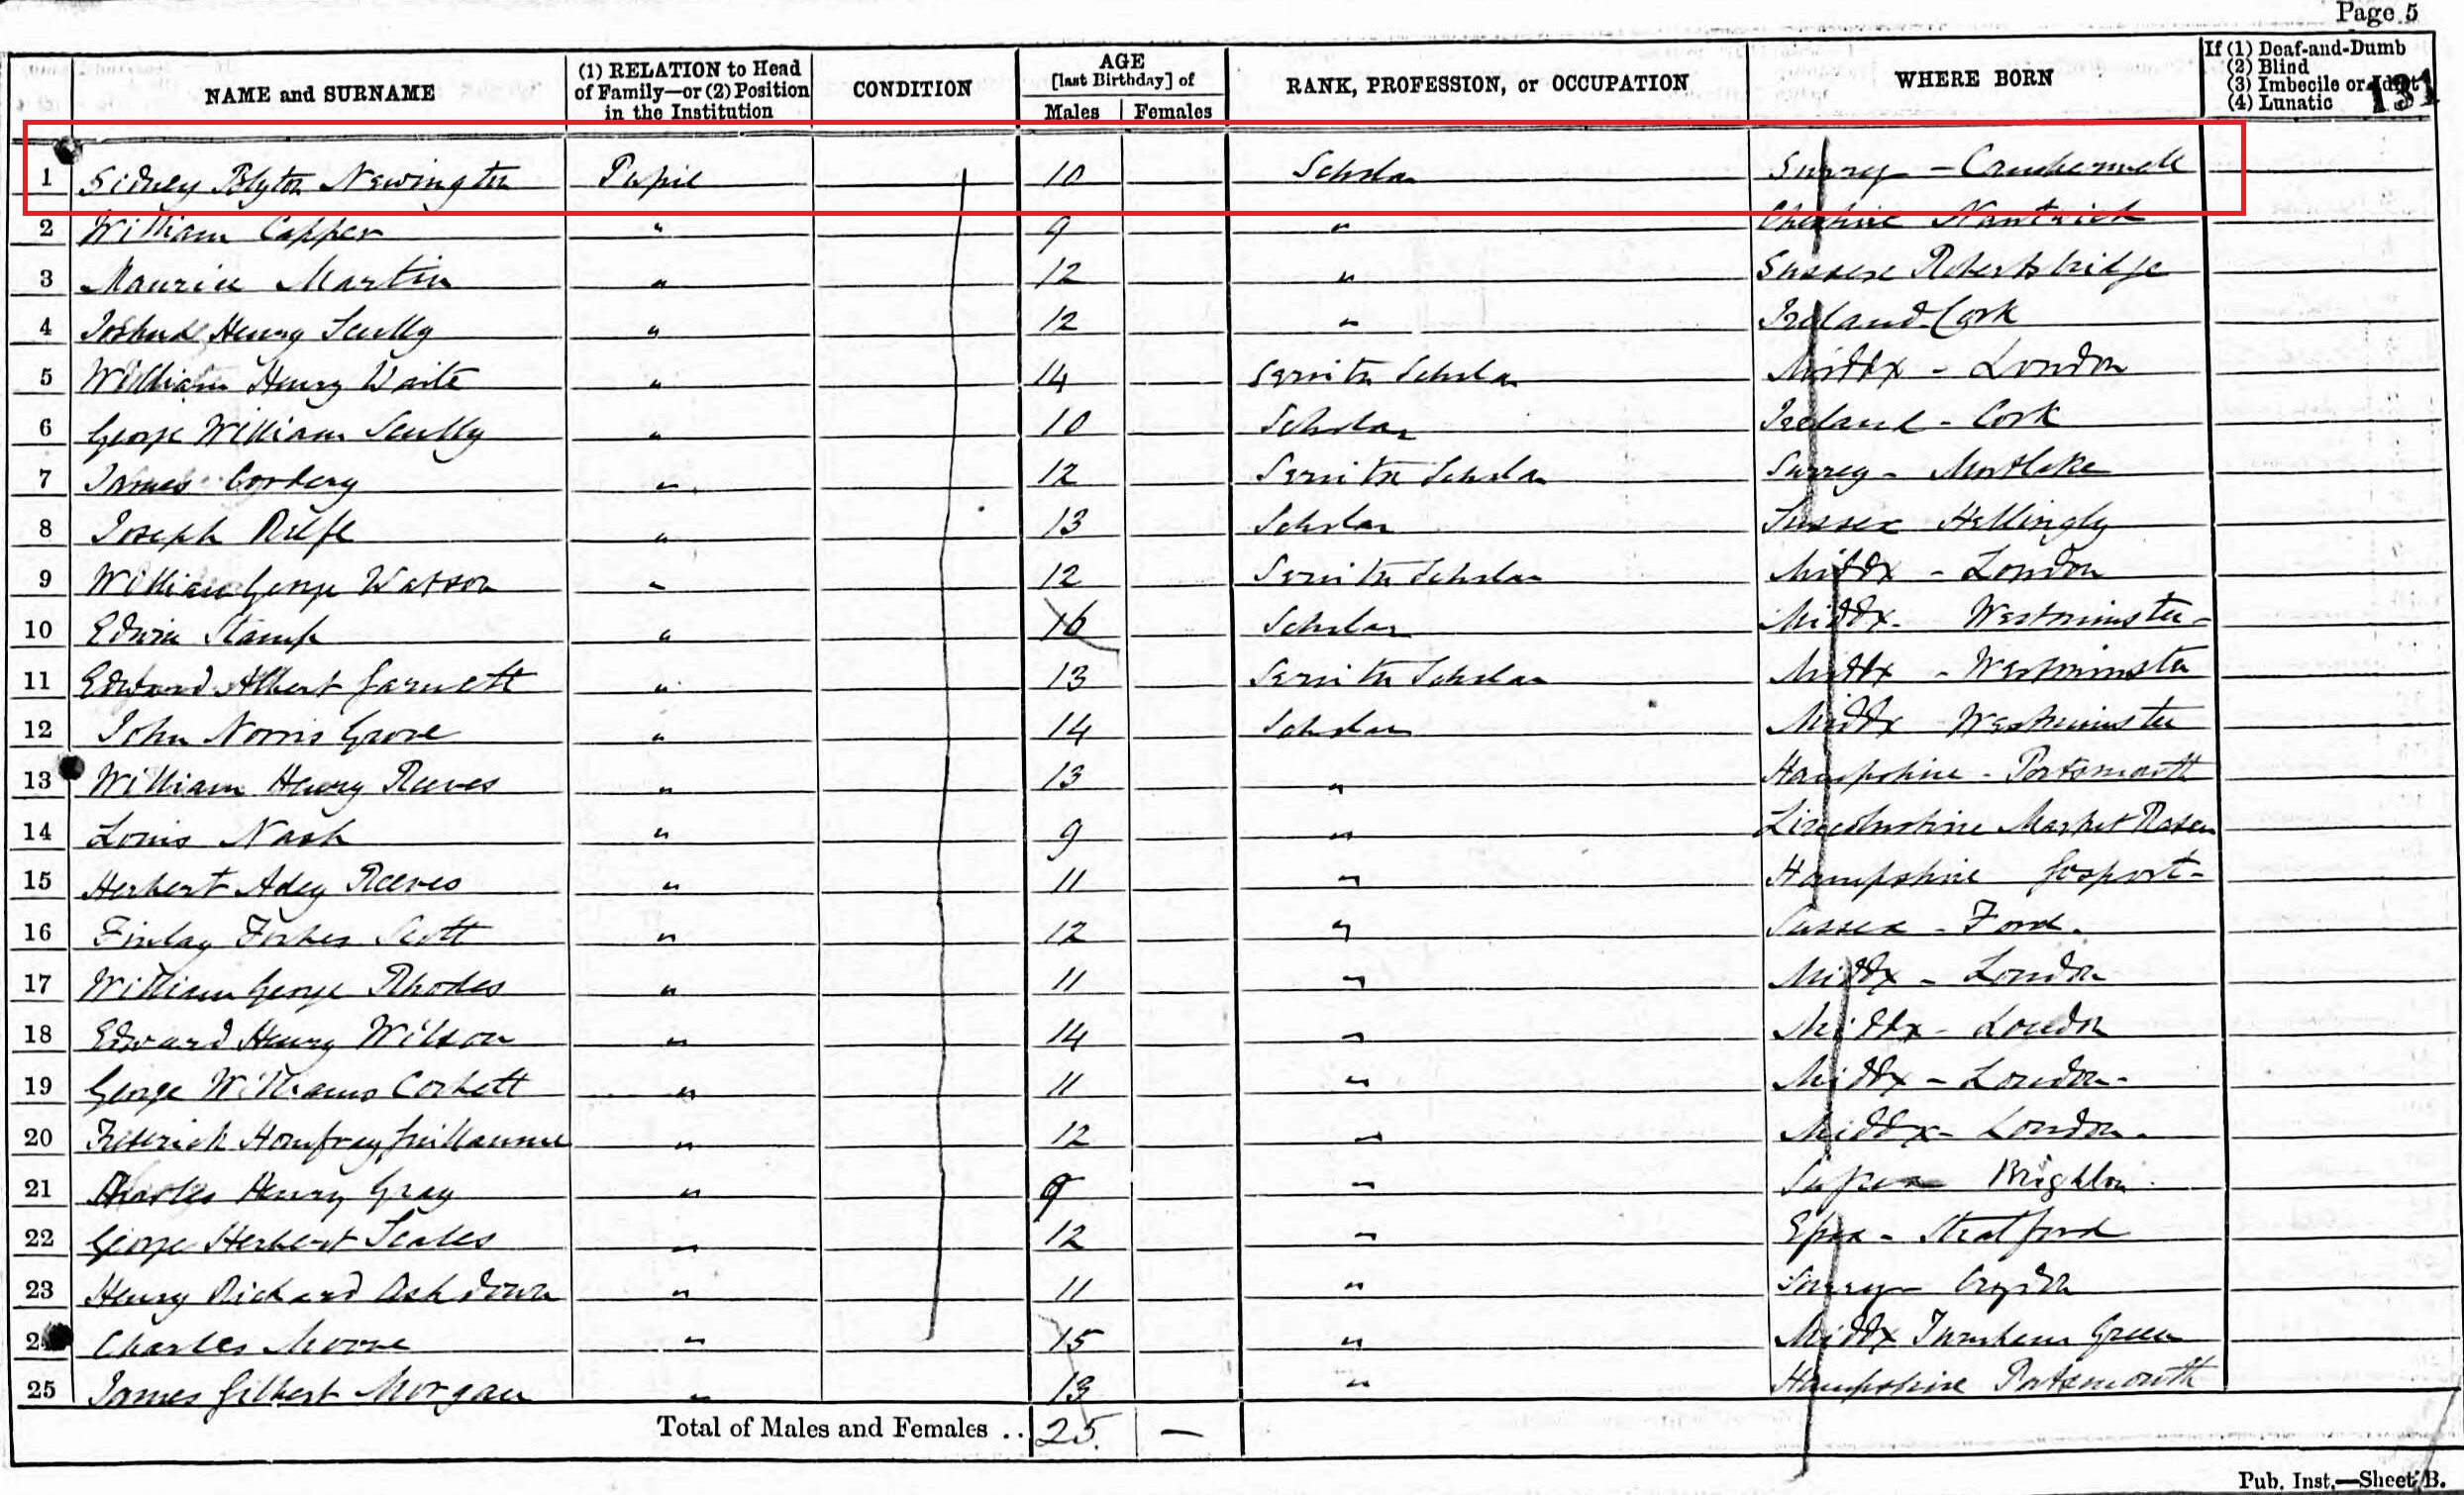 Page 5
NAME and SURNAME (1) RELATION to Head of Family—or (2) Position in the Institution CONDITION AGE [last Birthday] of Males Females RANK, PROFESSION, or OCCUPATION WHERE BORN If (1) Deaf-and-Dumb (2) Blind (3) Imbecile or Idiot (4) Lunatic
131
1 Sidney Newington Pupil 10 Scholar Surrey - Camberwell
2 William Capper " 9 " Cheshire Nantwich
3 Maurice Martin " 12 " Sussex Robertsbridge
4 Joshua Henry Scully " 12 " Ireland Cork
5 William Henry Waite " 14 Servitor Scholar Middx - London
6 George William Scully " 10 Scholar Ireland - Cork
7 James Cordery " 12 Servitor Scholar Surrey - Mortlake
8 Joseph Relfe " 13 Scholar Sussex Hellingly
9 William George Watson " 12 Servitor Scholar Middx - London
10 Edwin Stamp " 16 Scholar Middx - Westminster -
11 Edward Albert Garnett " 13 Servitor Scholar Middx - Westminster
12 John Norris Grove " 14 Scholar Middx Westminster
13 William Henry Reeves " 13 " Hampshire - Portsmouth
14 Louis Nash " 9 " Lincolnshire Market Rasen
15 Herbert Adey Reeves " 11 " Hampshire Gosport -
16 Finlay Forbes Scott " 12 " Sussex - Ford.
17 William George Rhodes " 11 " Middx - London
18 Edward Henry Wilson " 14 " Middx - London
19 George Williams Corbett " 11 " Middx - London -
20 Frederick Homfray Guillaume " 12 " Middx - London -
21 Charles Henry Gray " 9 " Sussex Brighton
22 George Herbert Scales " 12 " Essex - Stratford
23 Henry Richard Ashdown " 11 " Surrey - Croydon
2 Charles Moore " 15 " Middx Turnham Green
25 James Gilbert Morgan " 13 " Hampshire Portsmouth
Total of Males and Females .. 25. —
Pub. Inst.—Sheet B.